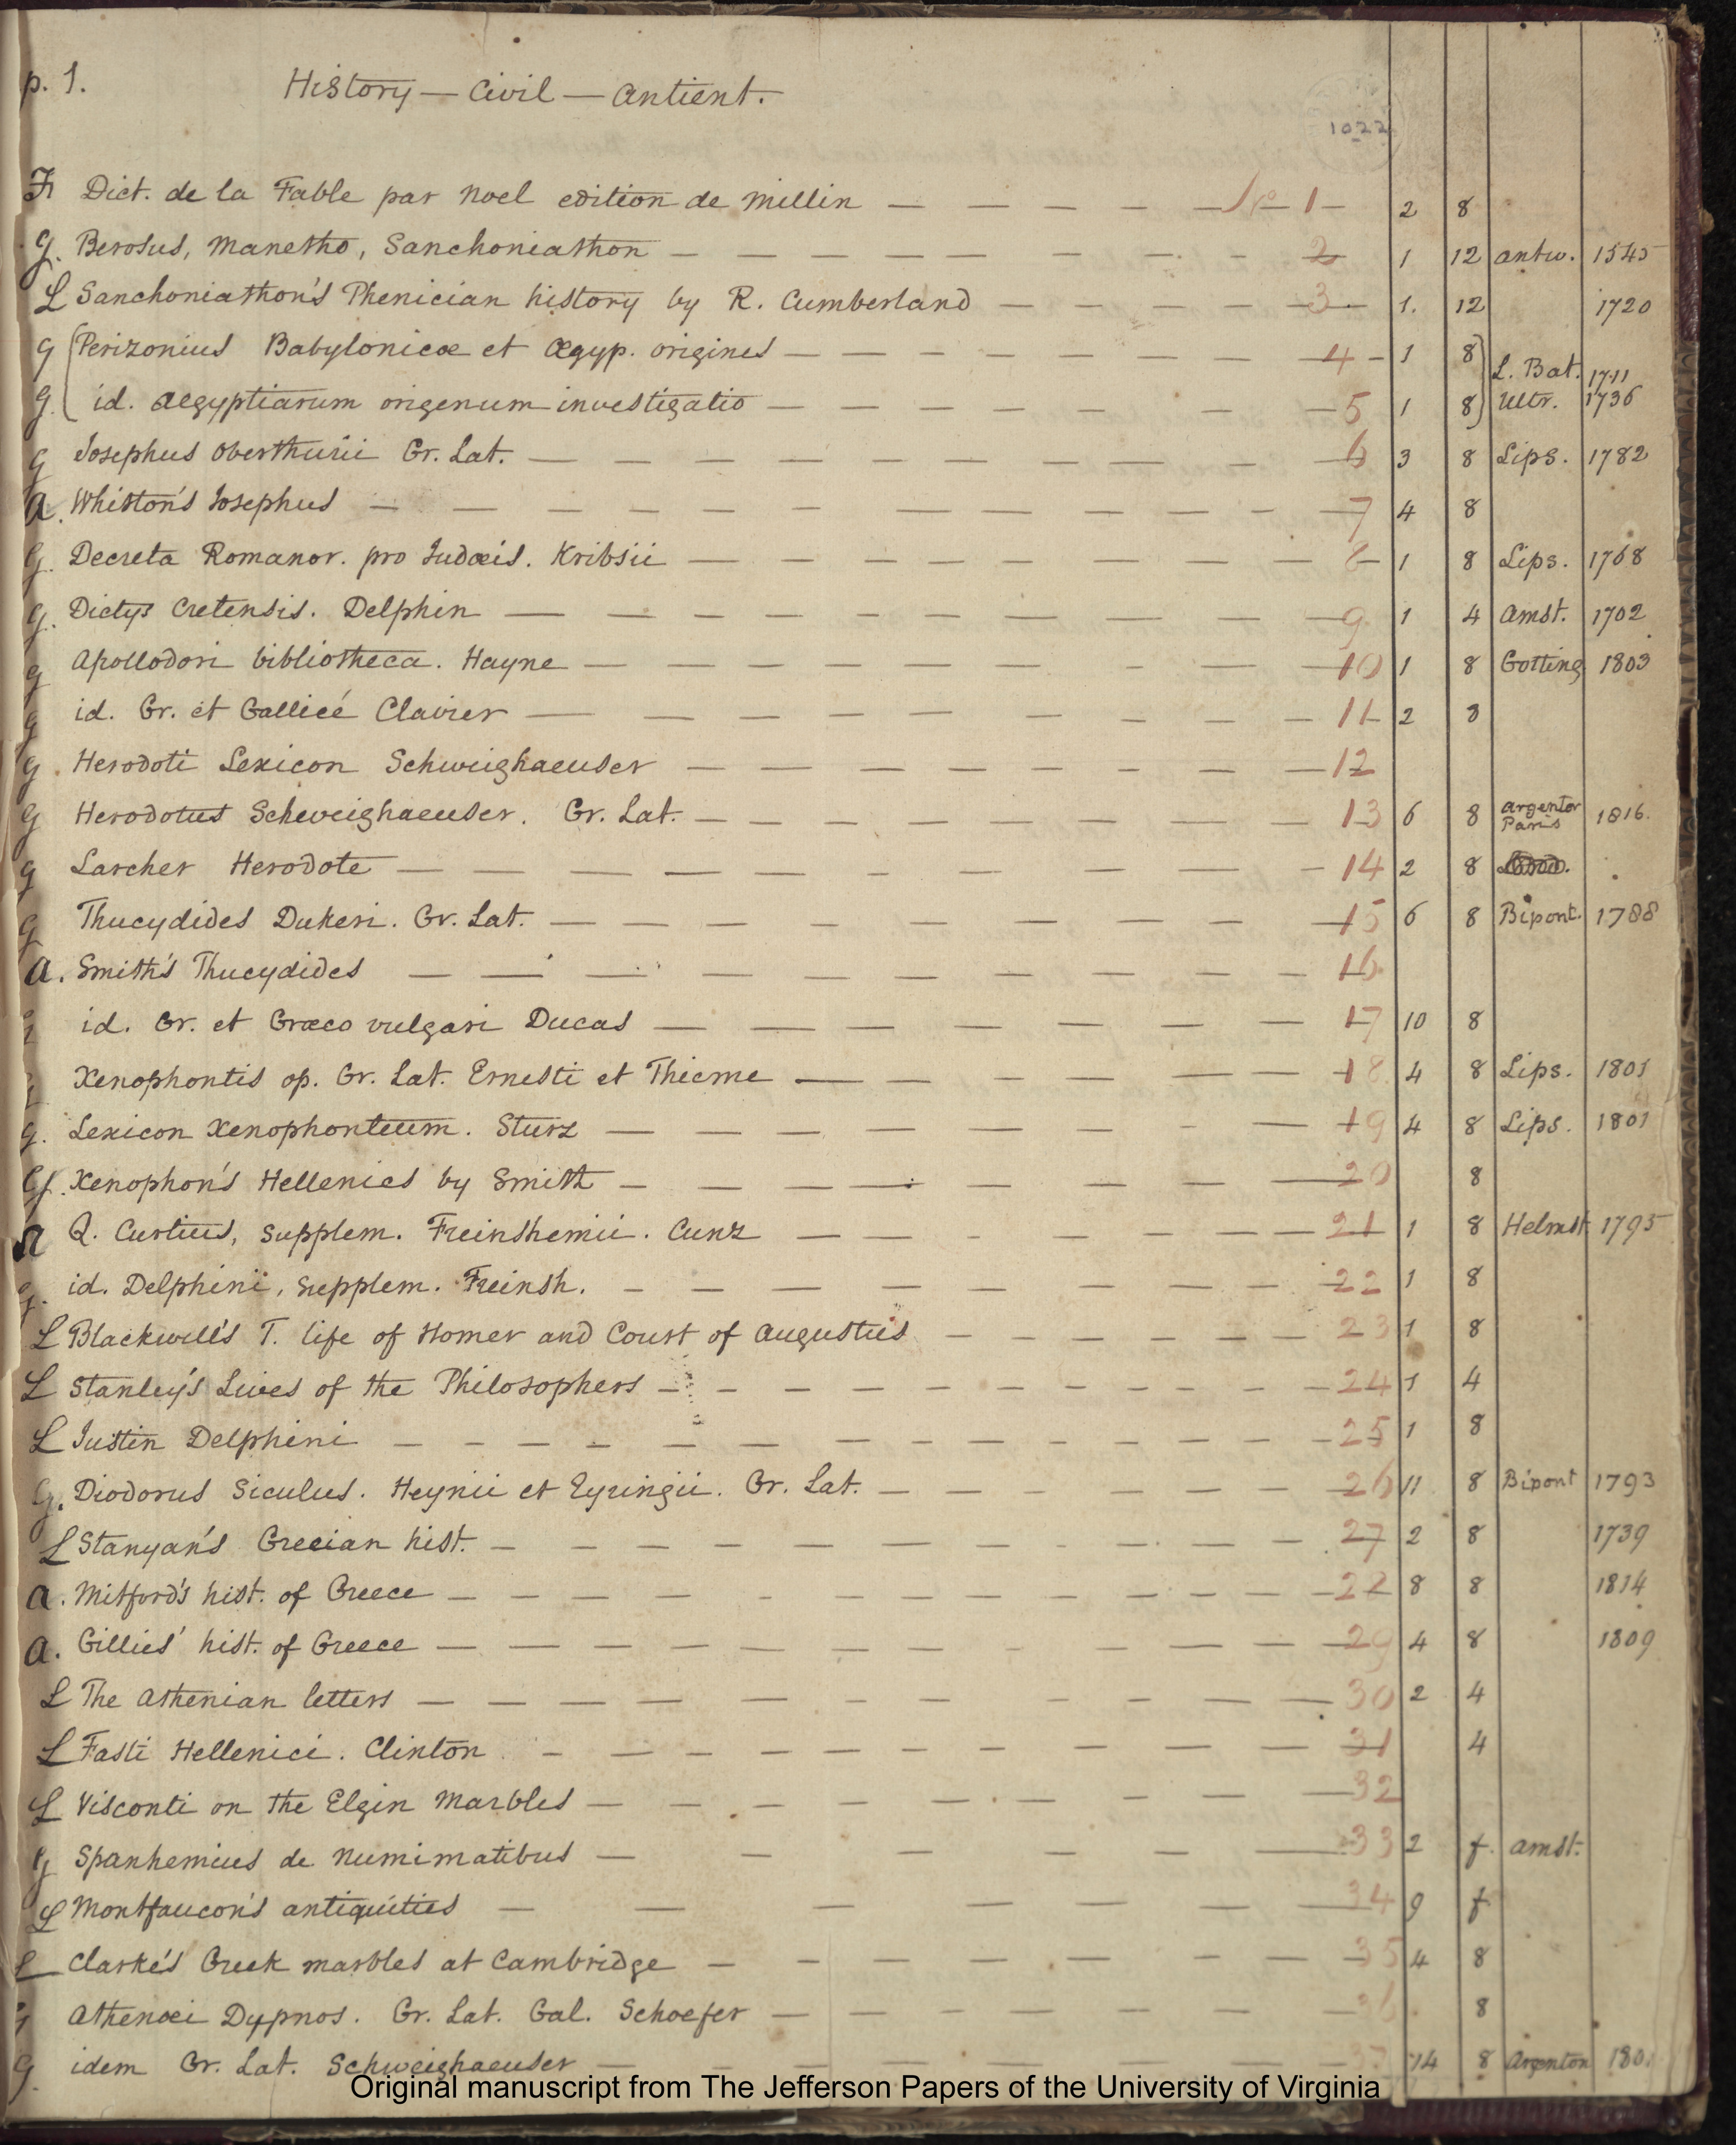 p. 1. History — Civil — Antient.
1022
F Dict. de la Fable par Noel edition de Millin — — — — — No 1 — 2 8
G. Berosus, Manetho, Sanchoniathon — — — — — — — — 2 1 12 Antw. 1545
L Sanchoniathon's Phenician history by R. Cumberland — — — — 3. 1. 12 1720
G Perizonius Babylonicæ et Ægyp. origines — — — — — — — 4 — 1 8 L. Bat. 1711
G. id. Aegyptiarum origenum investigatio — — — — — — — 5 1 8 Ultr. 1736
G Josephus Oberthurii Gr. Lat. — — — — — — — — 6 3 8 Lips. 1782
A. Whiston's Josephus — — — — — — — — — — 7 4 8
G. Decreta Romanor. pro Judæis. Kribsii — — — — — — — 8 1 8 Lips. 1768
G. Dictys Cretensis. Delphin — — — — — — — — 9 1 4 Amst. 1702
G Apollodori bibliotheca. Hayne — — — — — — — 10 1 8 Gotting 1803
G id. Gr. et Gallicé Clavier — — — — — — — — 11 2 8
G. Herodoti Lexicon Schweighaeuser — — — — — — — 12
G Herodotus Schweighaeuser. Gr. Lat. — — — — — — — 13 6 8 Argentor Paris 1816.
G Larcher Herodote — — — — — — — — — 14 2 8
G Thucydides Dukeri. Gr. Lat. — — — — — — — — 15 6 8 Bipont. 1788
A. Smith's Thucydides — — — — — — — — — 16.
id. Gr. et Græco vulgari Ducas — — — — — — — 17 10 8
Xenophontis op. Gr. Lat. Ernesti et Thieme — — — — — — 18 4 8 Lips. 1801
G. Lexicon Xenophonteum. Sturz — — — — — — — 19 4 8 Lips. 1801
G. Xenophon's Hellenics by Smith — — — — — — — 20 8
A Q. Curtius, Supplem. Freinshemii. Cunz — — — — — — 21 1 8 Helmst 1795
G. id. Delphini, Supplem. Freinsh. — — — — — — — 22 1 8
L Blackwell's T. life of Homer and Court of Augustus — — — — — — 23 1 8
L Stanley's Lives of the Philosophers — — — — — — — — 24 1 4
L Justin Delphini — — — — — — — — — — 25 1 8
G. Diodorus Siculus. Heynii et Eyringii. Gr. Lat. — — — — — — 26 11 8 Bipont 1793
L Stanyan's Grecian hist. — — — — — — — — 27 2 8 1739
A. Mitford's hist. of Greece — — — — — — — — 28 8 8 1814
A. Gillies' hist. of Greece — — — — — — — — 29 4 8 1809
L The Athenian letters — — — — — — — — — 30 2 4
L Fasti Hellenici. Clinton. — — — — — — — — 31 4
L Visconti on the Elgin Marbles — — — — — — — — 32
G Spanhemius de Numimatibus — — — — — — — 33 2 f. Amst.
L Montfaucon's antiquities — — — — — — 34 9 f
L Clarke's Greek marbles at Cambridge — — — — — — — 35 4 8
G Athenæi Dypnos. Gr. Lat. Gal. Schoefer — — — — — — 36 8
G. idem Gr. Lat. Schweighaeuser — — — — — — 37 14 8 Argenton
Original manuscript from The Jefferson Papers of the University of Virginia